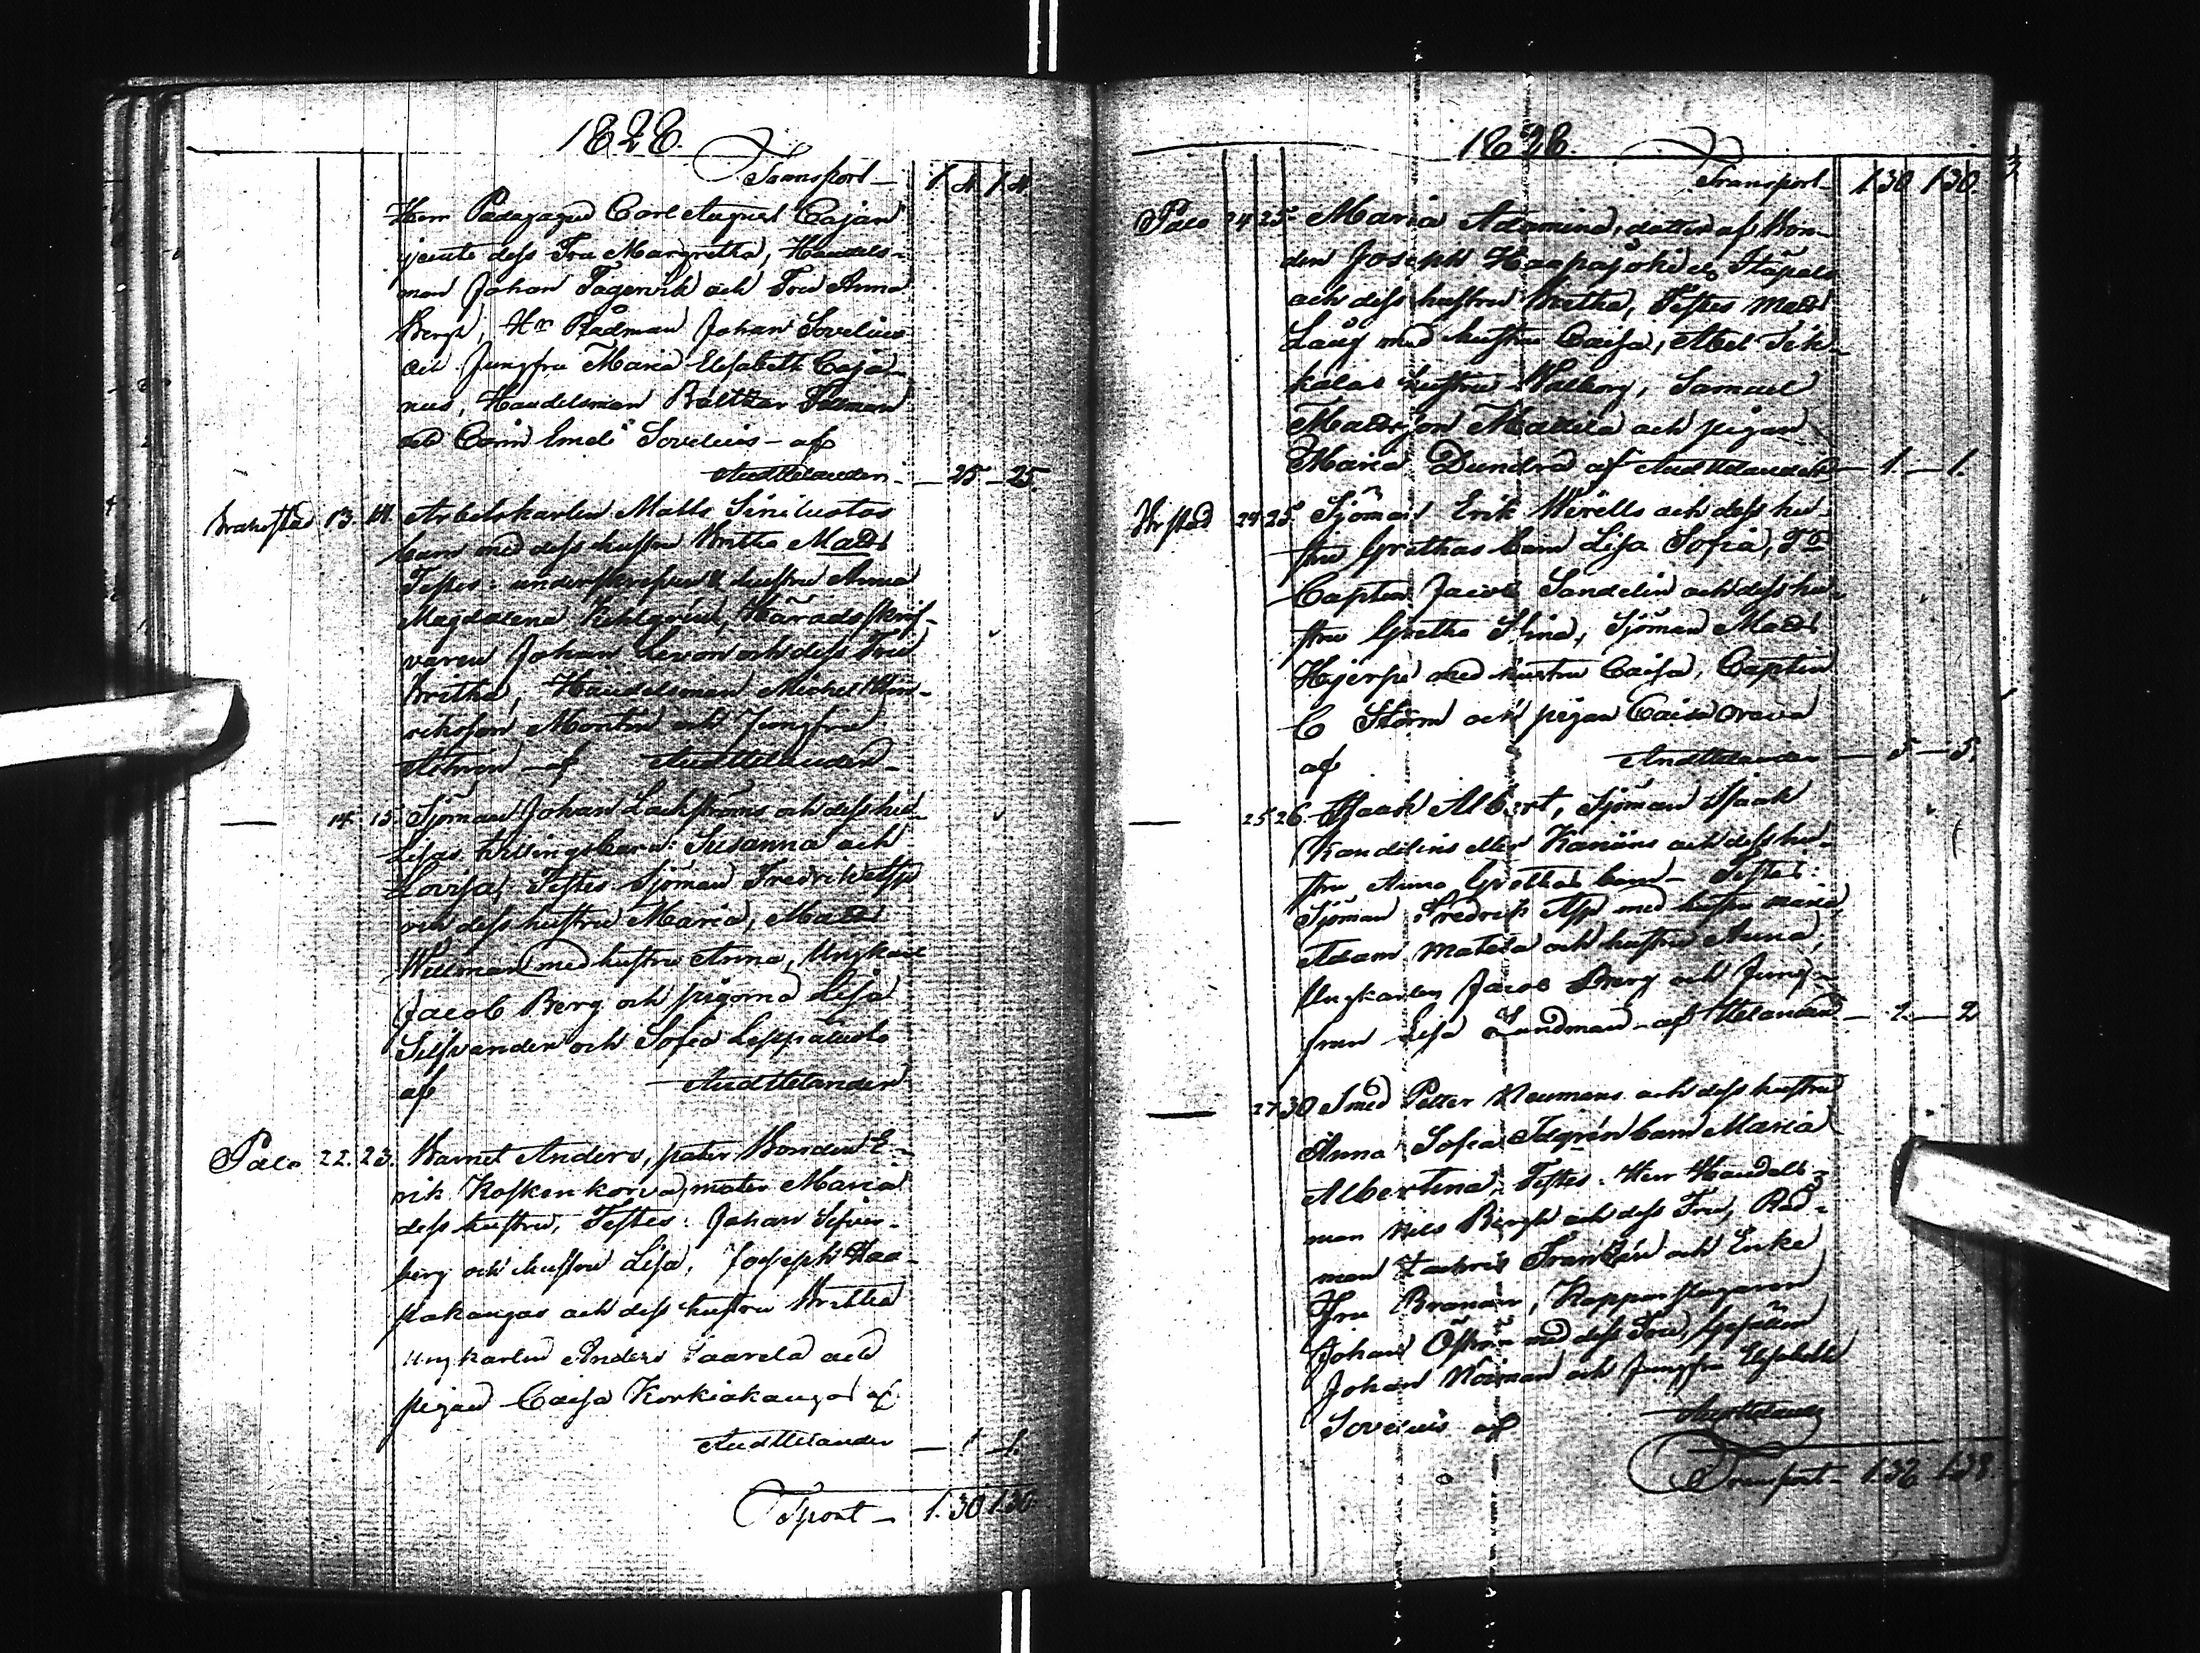 1828.
Transport — 1. 4 1. 4.
Herr Pædagogus Carl August Cajan
jemte dess Fru Margretha, Handels-
man Johan Fagervik och Fru Anna
Bergh, Hr Rådman Johan Sovelius
och Jungfru Maria Elisabeth Caja-
nus, Handelsman Balthar
och Carin Sovelius – af
And Helander — 25 — 25.
Brahestad 13. 14. Arbetskarlen Matts Siniluotos
barn med dess hustru Britha Mads
Testes: hustru Anna
Magdalena Häradsskrif-
varen Johan Levon och dess Fru
Britha, Handelsman Michel Hin-
richsson Montin och Jungfru
af And Helander
— 14. 15. Sjöman Johan Lackströms och dess hu
Lisas tvillingsbarn: Susanna och
Lovisa, Testes Sjöman Fredrik Asp
och dess hustru Maria, Mads
Wellman med hustru Anna, Ungkarl
Jacob Berg och pigorna Lisa
Silfvander och Sofia Leppäluoto
af And Helander
Palo 22. 23. Barnet Anders, pater Bonden E-
rik Koskenkorva, mater Maria
dess hustru, Testes: Johan Silfver-
berg och hustru Lisa, Joseph Haa-
pakangas och dess hustru Britha
Ungkarlen Anders Saarela och
pigan Caisa Korkiakangas af
And Helander — 1 — 1.
Tsport — 1. 30 1. 30.
1828.
Transport — 1 30 1 30.
Palo 24 25. Maria Adamina, dotter af Bon-
den Joseph Haapajoki
och dess hustru Britha, Testes Mads
Lång med hustru Caisa, Abel Pik-
kalas hustru Walborg, Samuel
Madsson Mattila och pigan
Maria Dundra af And Helander — 1. — 1.
Brstad 24 25. Sjöman Erik Wirells och dess hu-
stru Grethas barn Lisa Sofia, Ts
Capten Jacob Sandelin och dess hu-
stru Gretha Stina, Sjöman Mads
Hjerpe med hustru Caisa, Capten
C Storm och pigan Caisa Orava
af And Helander — 5 — 5.
— 25 26. Isaak Albert, Sjöman Isaak
Kandelins eller Kanäns och dess hu-
stru Anna Grethas barn – Testes:
Sjöman Fredrik Asp med hustru Maria
Adam Matela och hustru Anna,
Ungkarlen Jacob Berg och Jung-
frun Lisa Lundman – af Helander — 2 — 2
— 27 30 Smed Petter Neumans och dess hustru
Anna Sofia Idgrén barn Maria
Albertina, Testes. Herr Handels-
man Nils Bergh och dess Fru, Råd-
man Zachris Franzén och Enke
Fru Branan, Kopparslagaren
Johan Öhrn med dess Fru, Gesällen
Johan Norman och Jungfru Elisabeth
Sovelius af And Helander
Transport — 1. 38 1. 38.